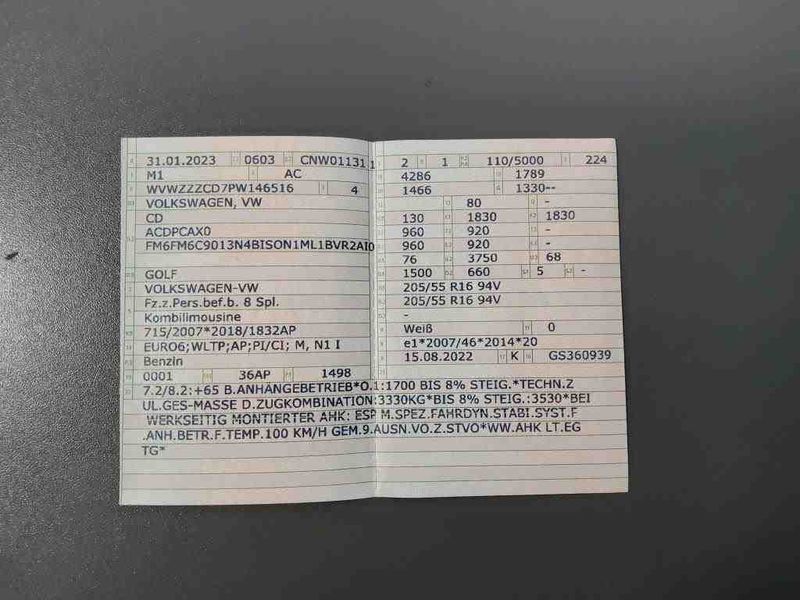 31.01.2023 0603 CNW01131 1
M1 AC
WVWZZZCD7PW146516 4
VOLKSWAGEN, VW
CD
ACDPCAX0
FM6FM6C9013N4BISON1ML1BVR2AI0
GOLF
VOLKSWAGEN-VW
Fz.z.Pers.bef.b. 8 Spl.
Kombilimousine
715/2007*2018/1832AP
EURO6;WLTP;AP;PI/CI; M, N1 I
Benzin
0001 36AP 1498
2 1 110/5000 224
4286 1789
1466 1330--
80 -
130 1830 1830
960 920 -
960 920 -
76 3750 68
1500 660 5 -
205/55 R16 94V
205/55 R16 94V
-
Weiß 0
e1*2007/46*2014*20
15.08.2022 K GS360939
7.2/8.2:+65 B.ANHÄNGEBETRIEB*O.1:1700 BIS 8% STEIG.*TECHN.Z
UL.GES-MASSE D.ZUGKOMBINATION:3330KG*BIS 8% STEIG.:3530*BEI
WERKSEITIG MONTIERTER AHK: ESP M.SPEZ.FAHRDYN.STABI.SYST.F
.ANH.BETR.F.TEMP.100 KM/H GEM.9.AUSN.VO.Z.STVO*WW.AHK LT.EG
TG*